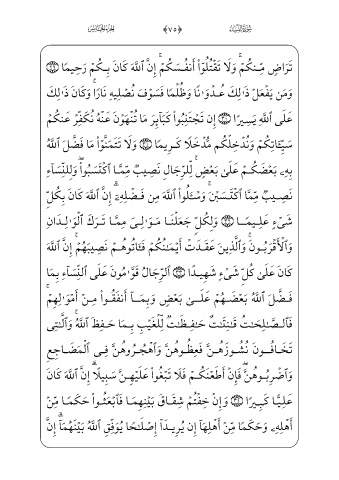 سُورَةُ النِّسَاءِ ﴿٧٥﴾ الجُزْءُ الخَامِسُ
تَرَاضٍ مِّنكُمْ ۚ وَلَا تَقْتُلُوٓا۟ أَنفُسَكُمْ ۚ إِنَّ ٱللَّهَ كَانَ بِكُمْ رَحِيمًا
وَمَن يَفْعَلْ ذَٰلِكَ عُدْوَٰنًا وَظُلْمًا فَسَوْفَ نُصْلِيهِ نَارًا ۚ وَكَانَ ذَٰلِكَ
عَلَى ٱللَّهِ يَسِيرًا إِن تَجْتَنِبُوا۟ كَبَآئِرَ مَا تُنْهَوْنَ عَنْهُ نُكَفِّرْ عَنكُمْ
سَيِّـَٔاتِكُمْ وَنُدْخِلْكُم مُّدْخَلًا كَرِيمًا وَلَا تَتَمَنَّوْا۟ مَا فَضَّلَ ٱللَّهُ
بِهِۦ بَعْضَكُمْ عَلَىٰ بَعْضٍ ۚ لِّلرِّجَالِ نَصِيبٌ مِّمَّا ٱكْتَسَبُوا۟ ۖ وَلِلنِّسَآءِ
نَصِيبٌ مِّمَّا ٱكْتَسَبْنَ ۚ وَسْـَٔلُوا۟ ٱللَّهَ مِن فَضْلِهِۦٓ ۗ إِنَّ ٱللَّهَ كَانَ بِكُلِّ
شَىْءٍ عَلِيمًا وَلِكُلٍّ جَعَلْنَا مَوَٰلِىَ مِمَّا تَرَكَ ٱلْوَٰلِدَانِ
وَٱلْأَقْرَبُونَ ۚ وَٱلَّذِينَ عَقَدَتْ أَيْمَٰنُكُمْ فَـَٔاتُوهُمْ نَصِيبَهُمْ ۚ إِنَّ ٱللَّهَ
كَانَ عَلَىٰ كُلِّ شَىْءٍ شَهِيدًا ٱلرِّجَالُ قَوَّٰمُونَ عَلَى ٱلنِّسَآءِ بِمَا
فَضَّلَ ٱللَّهُ بَعْضَهُمْ عَلَىٰ بَعْضٍ وَبِمَآ أَنفَقُوا۟ مِنْ أَمْوَٰلِهِمْ ۚ
فَٱلصَّٰلِحَٰتُ قَٰنِتَٰتٌ حَٰفِظَٰتٌ لِّلْغَيْبِ بِمَا حَفِظَ ٱللَّهُ ۚ وَٱلَّٰتِى
تَخَافُونَ نُشُوزَهُنَّ فَعِظُوهُنَّ وَٱهْجُرُوهُنَّ فِى ٱلْمَضَاجِعِ
وَٱضْرِبُوهُنَّ ۖ فَإِنْ أَطَعْنَكُمْ فَلَا تَبْغُوا۟ عَلَيْهِنَّ سَبِيلًا ۗ إِنَّ ٱللَّهَ كَانَ
عَلِيًّا كَبِيرًا وَإِنْ خِفْتُمْ شِقَاقَ بَيْنِهِمَا فَٱبْعَثُوا۟ حَكَمًا مِّنْ
أَهْلِهِۦ وَحَكَمًا مِّنْ أَهْلِهَآ إِن يُرِيدَآ إِصْلَٰحًا يُوَفِّقِ ٱللَّهُ بَيْنَهُمَآ ۗ إِنَّ